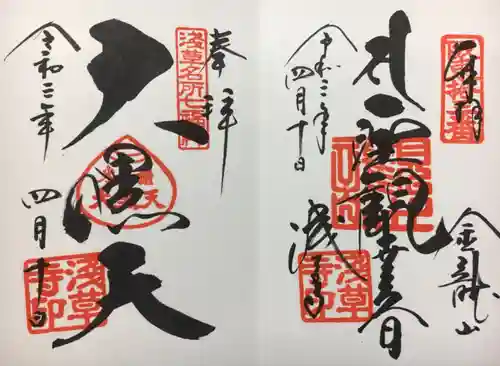 奉拝
金龍山
聖観世音
浅草寺
令和三年
四月十日
浅草寺印
奉拝
浅草名所七福神
大黒天
令和三年
四月十日
浅草寺印